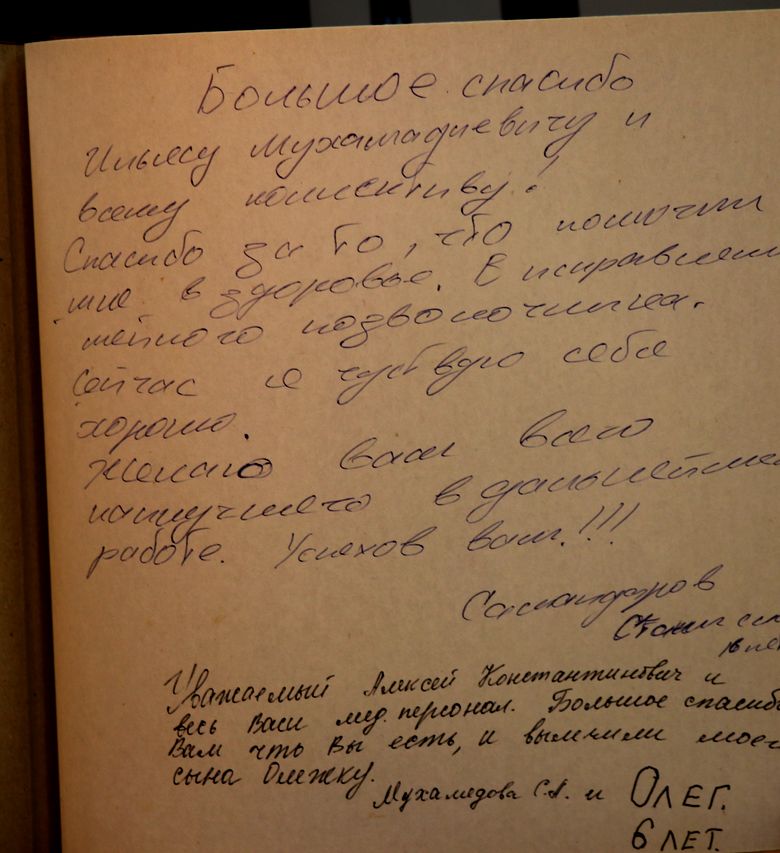 Большое спасибо
Ильясу Мухамадиевичу и
всему коллективу!
Спасибо за то, что помогли
мне в здоровье. В исправлении
шейного позвоночника.
Сейчас я чувствую себя
хорошо.
Желаю вам всего
наилучшего в дальнейшей
работе. Успехов вам!!!
Уважаемый Алексей Константинович и
весь Ваш мед. персонал. Большое спасибо
Вам что Вы есть, и вылечили моего
сына Олежку.
Мухамедова С.А. и Олег.
6 лет.